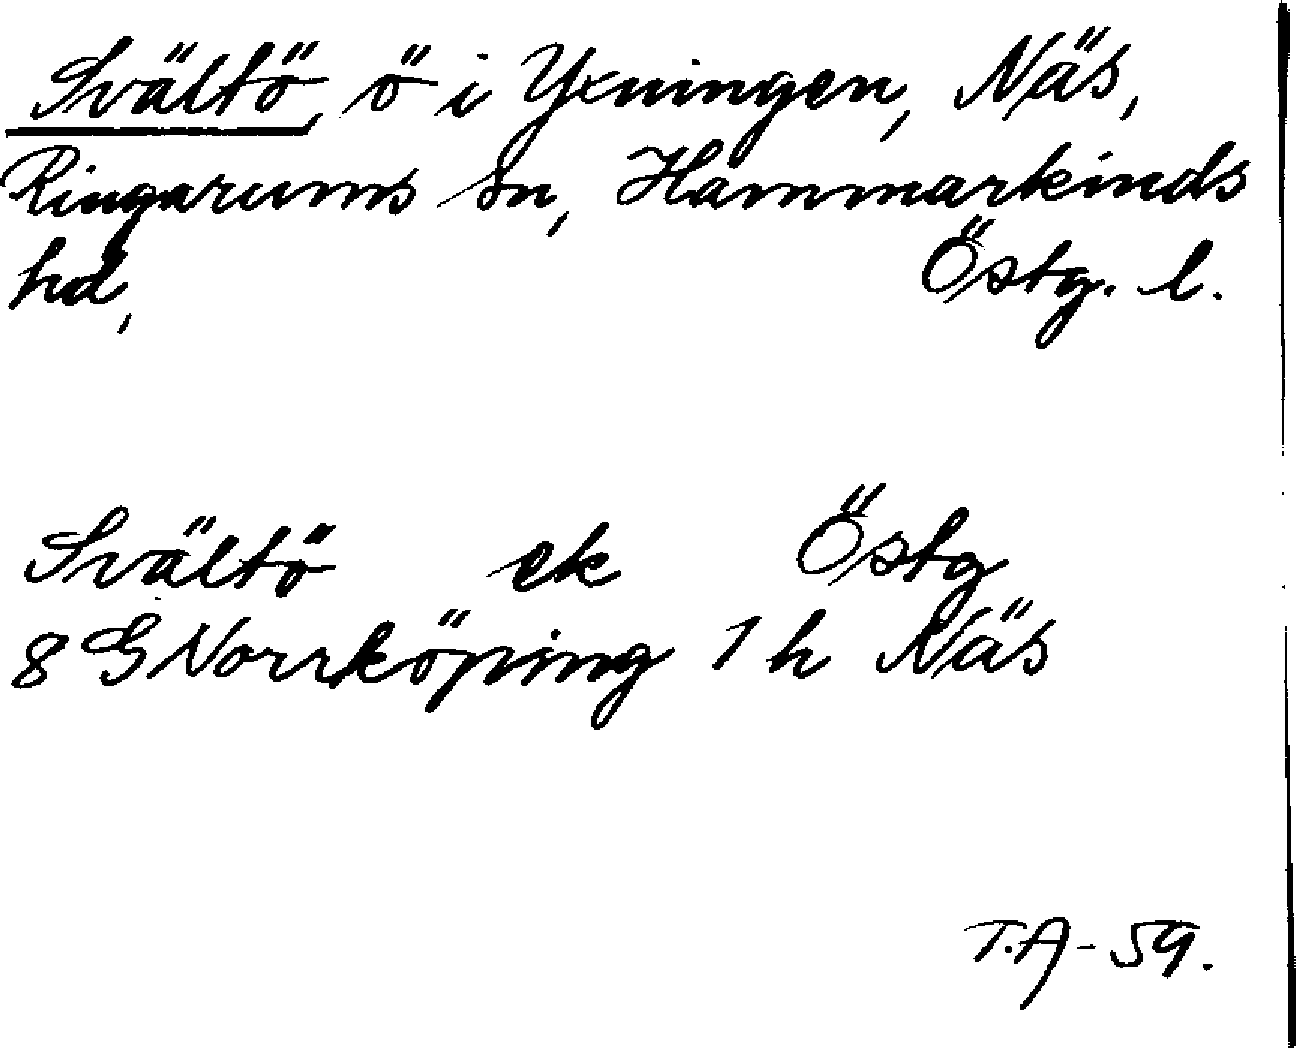 Svältö, ö i Yxningen, Näs,
Ringarums sn, Hammarkinds
hd, Östg. l.
Svältö ek Östg
8 G Norrköping 1 h Näs
T.A-59.